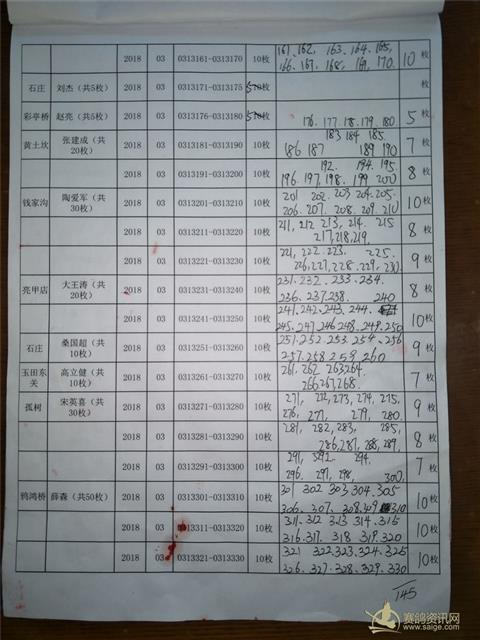 2018 03 0313161-0313170 10枚 161, 162, 163, 164, 165, 166, 167, 168, 169, 170. 10枚
石庄 刘杰（共5枚） 2018 03 0313171-0313175 枚
彩亭桥 赵亮（共5枚） 2018 03 0313176-0313180 176, 177, 178, 179, 180 5枚
黄土坎 张建成（共20枚） 2018 03 0313181-0313190 10枚 183 184 185. 186 187 189 190 7枚
2018 03 0313191-0313200 10枚 192. 194. 195 196. 197, 198. 199 200 8枚
钱家沟 陶爱军（共30枚） 2018 03 0313201-0313210 10枚 201 202. 203 204. 205. 206. 207. 208. 209. 210 10枚
2018 03 0313211-0313220 10枚 211, 212 213, 214. 215 217, 218, 219. 8枚
2018 03 0313221-0313230 10枚 221, 222. 223. 225. 226, 227, 228. 229, 230. 9枚
亮甲店 大王涛（共20枚） 2018 03 0313231-0313240 10枚 231. 232. 233. 234. 236. 237. 238. 240 8枚
2018 03 0313241-0313250 10枚 241. 242. 243. 244. 245. 247. 246 248. 249. 250 10枚
石庄 桑国超（共10枚） 2018 03 0313251-0313260 10枚 251. 252. 253. 254. 256 257. 258 259 260 9枚
玉田东关 高立健（共10枚） 2018 03 0313261-0313270 10枚 261, 262 263 264, 266 267, 268. 7枚
孤树 宋英喜（共30枚） 2018 03 0313271-0313280 10枚 271, 272, 273, 274, 275, 276, 277, 279, 280. 9枚
2018 03 0313281-0313290 10枚 281, 282, 283, 285, 286, 287, 288, 289. 8枚
2018 03 0313291-0313300 10枚 291, 292. 294. 296. 297, 298, 300. 7枚
鸦鸿桥 薛森（共50枚） 2018 03 0313301-0313310 10枚 301 302 303 304. 305 306. 307. 308. 309 310 10枚
2018 03 0313311-0313320 10枚 311. 312 313 314. 315 316. 317. 318 319. 320 10枚
2018 03 0313321-0313330 10枚 321 322. 323. 324. 325 326. 327. 328. 329. 330 10枚
145
赛鸽资讯网
www.saige.com